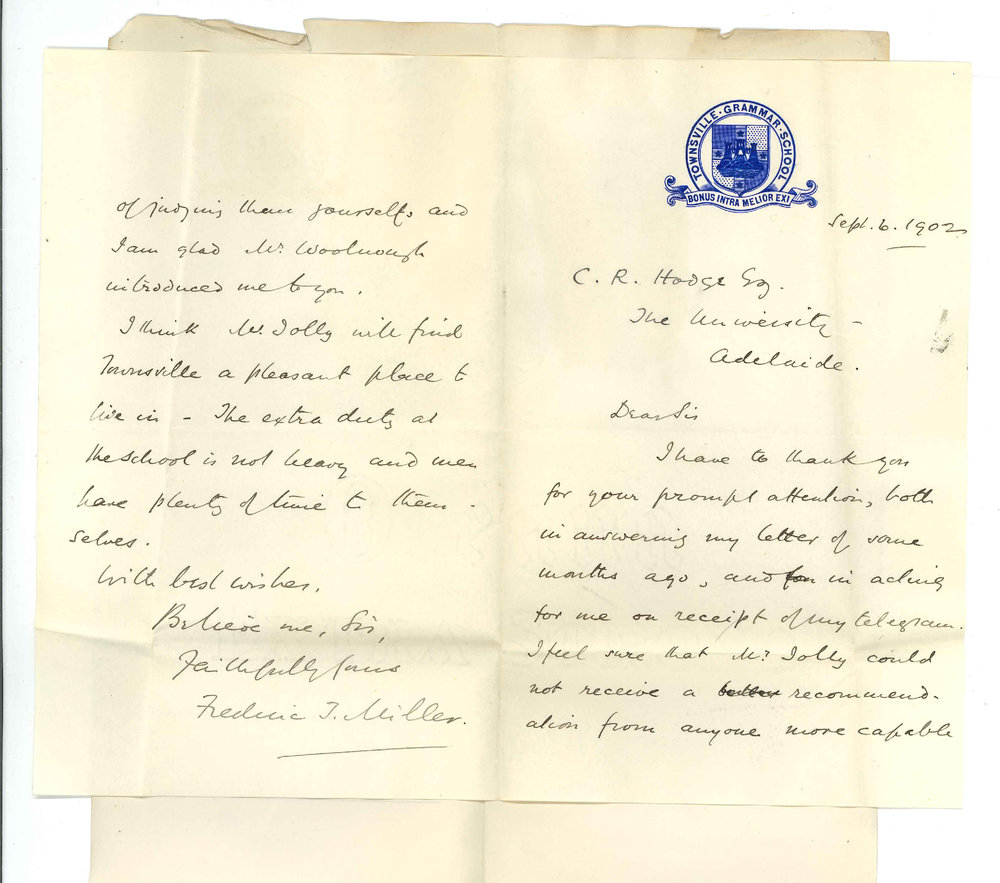 TOWNSVILLE · GRAMMAR · SCHOOL
BONUS INTRA MELIOR EXI
Sept. 6. 1902
C. R. Hodge Esq.
The University –
Adelaide.
Dear Sir
I have to thank you
for your prompt attention, both
in answering my letter of some
months ago, and for in acting
for me on receipt of my telegram.
I feel sure that Mr Jolly could
not receive a better recommend-
ation from anyone more capable
of judging them yourself, and
I am glad Mr Woolnough
introduced me to you.
I think Mr Jolly will find
Townsville a pleasant place to
live in – The extra duty at
the school is not heavy and men
have plenty of time to them-
selves.
With best wishes,
Believe me, Sir,
Faithfully yours
Frederic T. Miller.